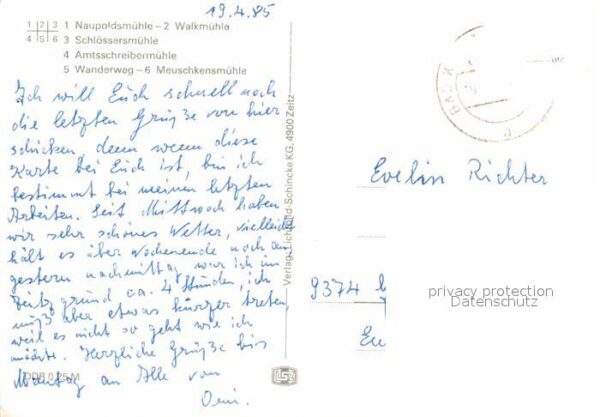 19.4.85
1 2 3 1 Naupoldsmühle – 2 Walkmühle
4 5 6 3 Schlössersmühle
4 Amtsschreibermühle
5 Wanderweg – 6 Meuschkensmühle
Ich will Euch schnell noch
die letzten Grüße von hier
schicken, denn wenn diese
Karte bei Euch ist, bin ich
bestimmt bei meinen letzten
Arbeiten. Seit Mittwoch haben
wir sehr schönes Wetter, vielleicht
hält es über Wochenende noch an
gestern nachmittag war ich im
Zeitzgrund ca. 4 Stunden, ich
muß aber etwas kürzer treten,
weil es nicht so geht wie ich
möchte. Herzliche Grüße bis
Montag an Alle von
DDR 0,25 M
Verlag Lichtbild-Schincke KG, 4900 Zeitz
BAD K
Evelin Richter
9374
privacy protection
Datenschutz